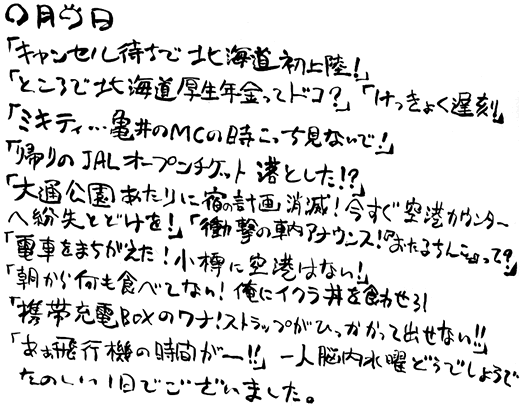 〇月△日
「キャンセル待ちで北海道初上陸！」
「ところで北海道厚生年金ってドコ？」「けっきょく遅刻」
「ミキティ…亀井のMCの時こっち見ないで！」
「帰りのJALオープンチケット落とした！？」
「大通公園あたりに宿の計画消滅！今すぐ空港カウンター
へ紛失とどけを！」「衝撃の車内アナウンス！『おたるちんこぉ』って？」
「電車をまちがえた！小樽に空港はない！」
「朝から何も食べてない！俺にイクラ丼を食わせろ！
「携帯充電BOXのワナ！ストラップがひっかかって出せない！！」
「ああ飛行機の時間がー！！」 一人脳内水曜どうでしょうで
たのしい1日でございました。